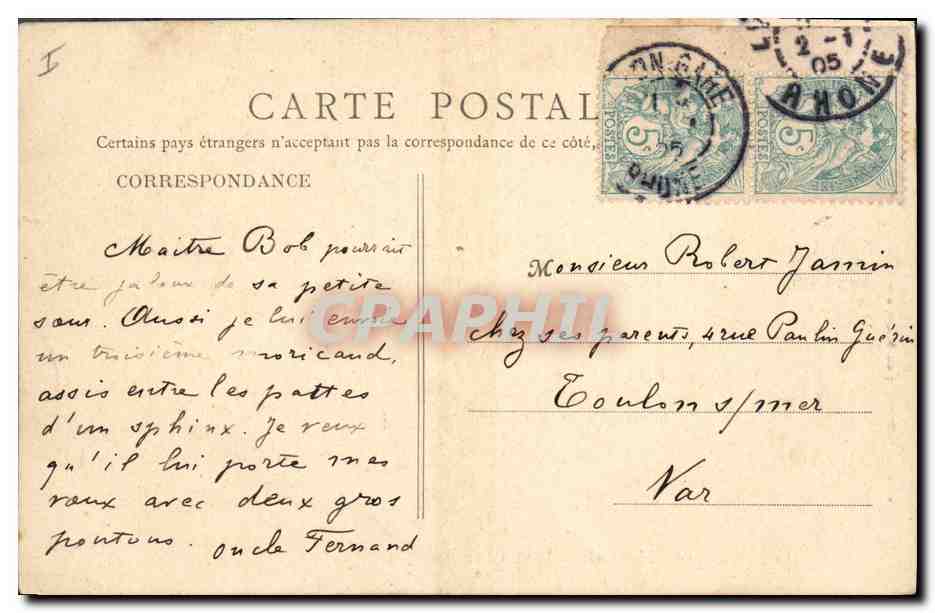 I
CARTE POSTAL
Certains pays étrangers n'acceptant pas la correspondance de ce côté,
CORRESPONDANCE
Maitre Bob pourrait
être jaloux de sa petite
sœur. Aussi je lui envoie
un troisième moricaud,
assis entre les pattes
d'un sphinx. Je veux
qu'il lui porte mes
vœux avec deux gros
poutous. Oncle Fernand
ON-GARE
05
RHONE
2-1
05
RHONE
5c
POSTES
5c
POSTES
Monsieur Robert Jamin
Chez ses parents, 4 rue Paulin Guérin
Toulon s/mer
Var
CPAPHTI